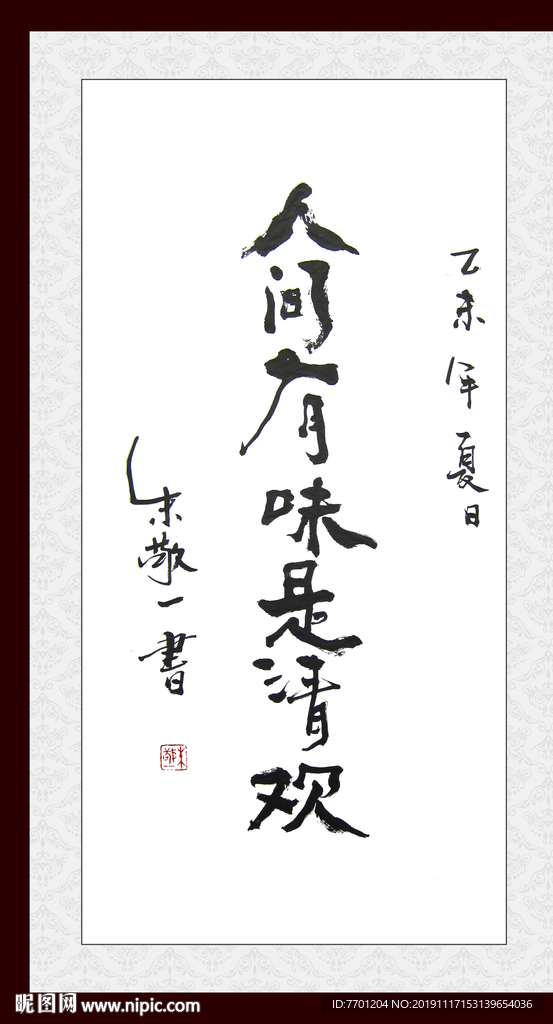 乙未年夏日
人间有味是清欢
朱敬一書
昵图网 www.nipic.com
ID:7701204 NO:20191117153139654036